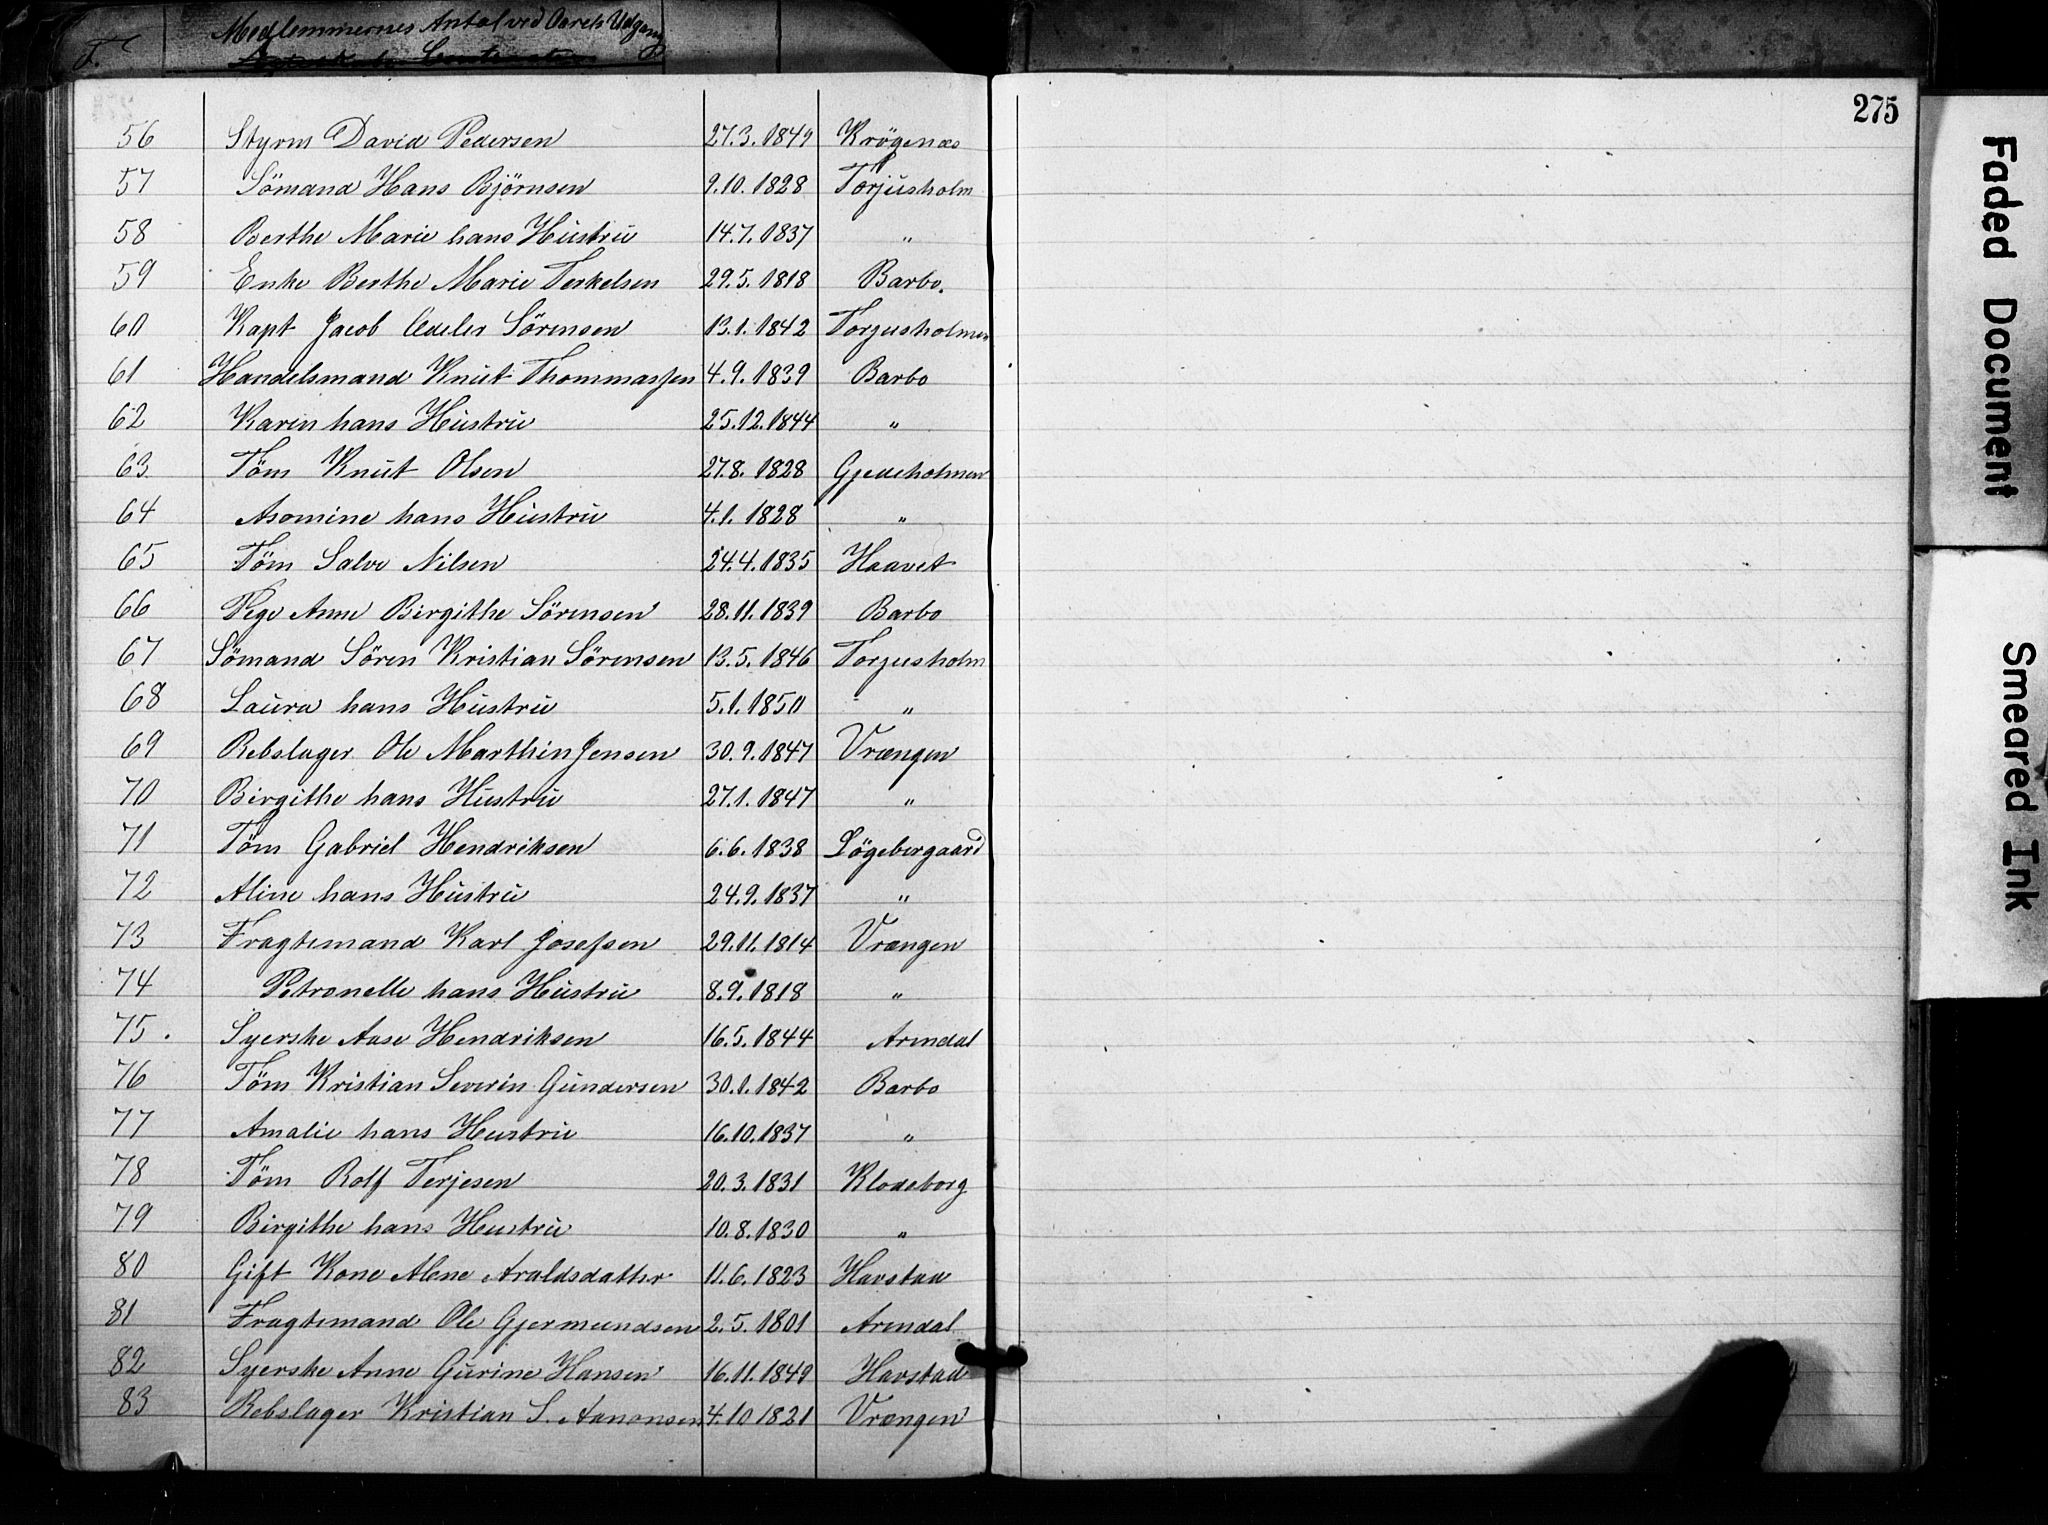 Medlemmernes Antal ved Aarets Udgang
275
56 Styrm David Pedersen 27.3.1849 Krögenæs
57 Sömand Hans Björnsen 9.10.1828 Torjusholm
58 Berthe Marie hans Hustru 14.7.1837 "
59 Enke Berthe Marie Terkelsen 29.5.1818 Barbo.
60 Kapt Jacob Adeler Sörensen 13.1.1842 Torjusholmen
61 Handelsmand Knut Thommassen 4.9.1839 Barbo
62 Karin hans Hustru 25.12.1844 "
63 Töm Knut Olsen 27.8.1828 Gjedeholmen
64 Asomine hans Hustru 4.1.1828 "
65 Töm Salve Nilsen 24.4.1835 Haavet
66 Pige Anne Birgithe Sörensen 28.11.1839 Barbo
67 Sömand Sören Kristian Sörensen 13.5.1846 Torjusholm
68 Laura hans Hustru 5.1.1850 "
69 Rebslager Ole Marthin Jensen 30.9.1847 Vrængen
70 Birgithe hans Hustru 27.1.1847 "
71 Töm Gabriel Hendriksen 6.6.1838 Lögebergaard
72 Aline hans Hustru 24.9.1837 "
73 Fragtemand Karl Josefsen 29.11.1814 Vrængen
74 Petronelle hans Hustru 8.9.1818 "
75. Syerske Aase Hendriksen 16.5.1844 Arendal
76 Töm Kristian Severin Gundersen 30.1.1842 Barbo
77 Amalie hans Hustru 16.10.1837 "
78 Töm Rolf Terjesen 20.3.1831 Klodeborg
79 Birgithe hans Hustru 10.8.1830 "
80 Gift Kone Alene Araldsdatter 11.6.1823 Havstad
81 Fragtemand Ole Gjermundsen 2.5.1801 Arendal
82 Syerske Anne Gurine Hansen 16.11.1849 Havstad
83 Rebslager Kristian S. Aanonsen 4.10 1821 Vrængen
Faded Document
Smeared Ink